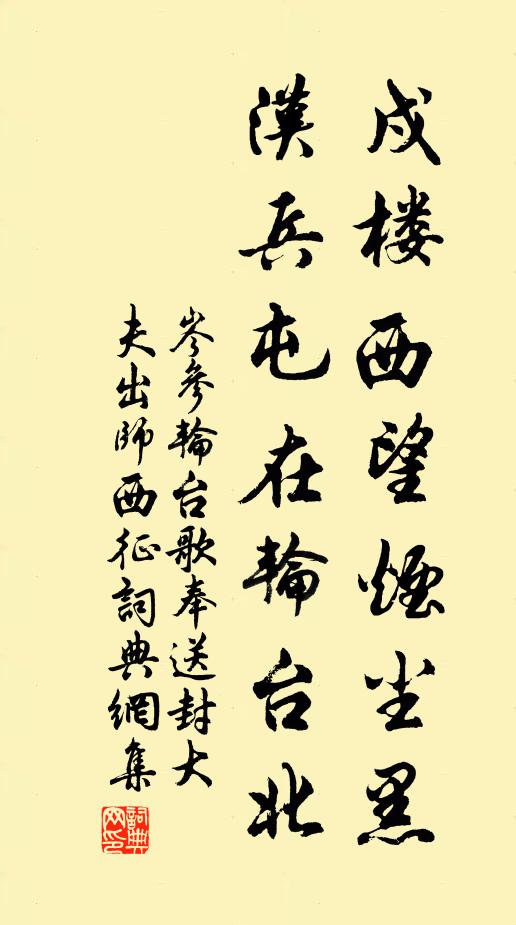 戍楼西望煙尘黑
漢兵屯在輪台北
岑參輪台歌奉送封大
夫出師西征詞典網集
詞典
网印